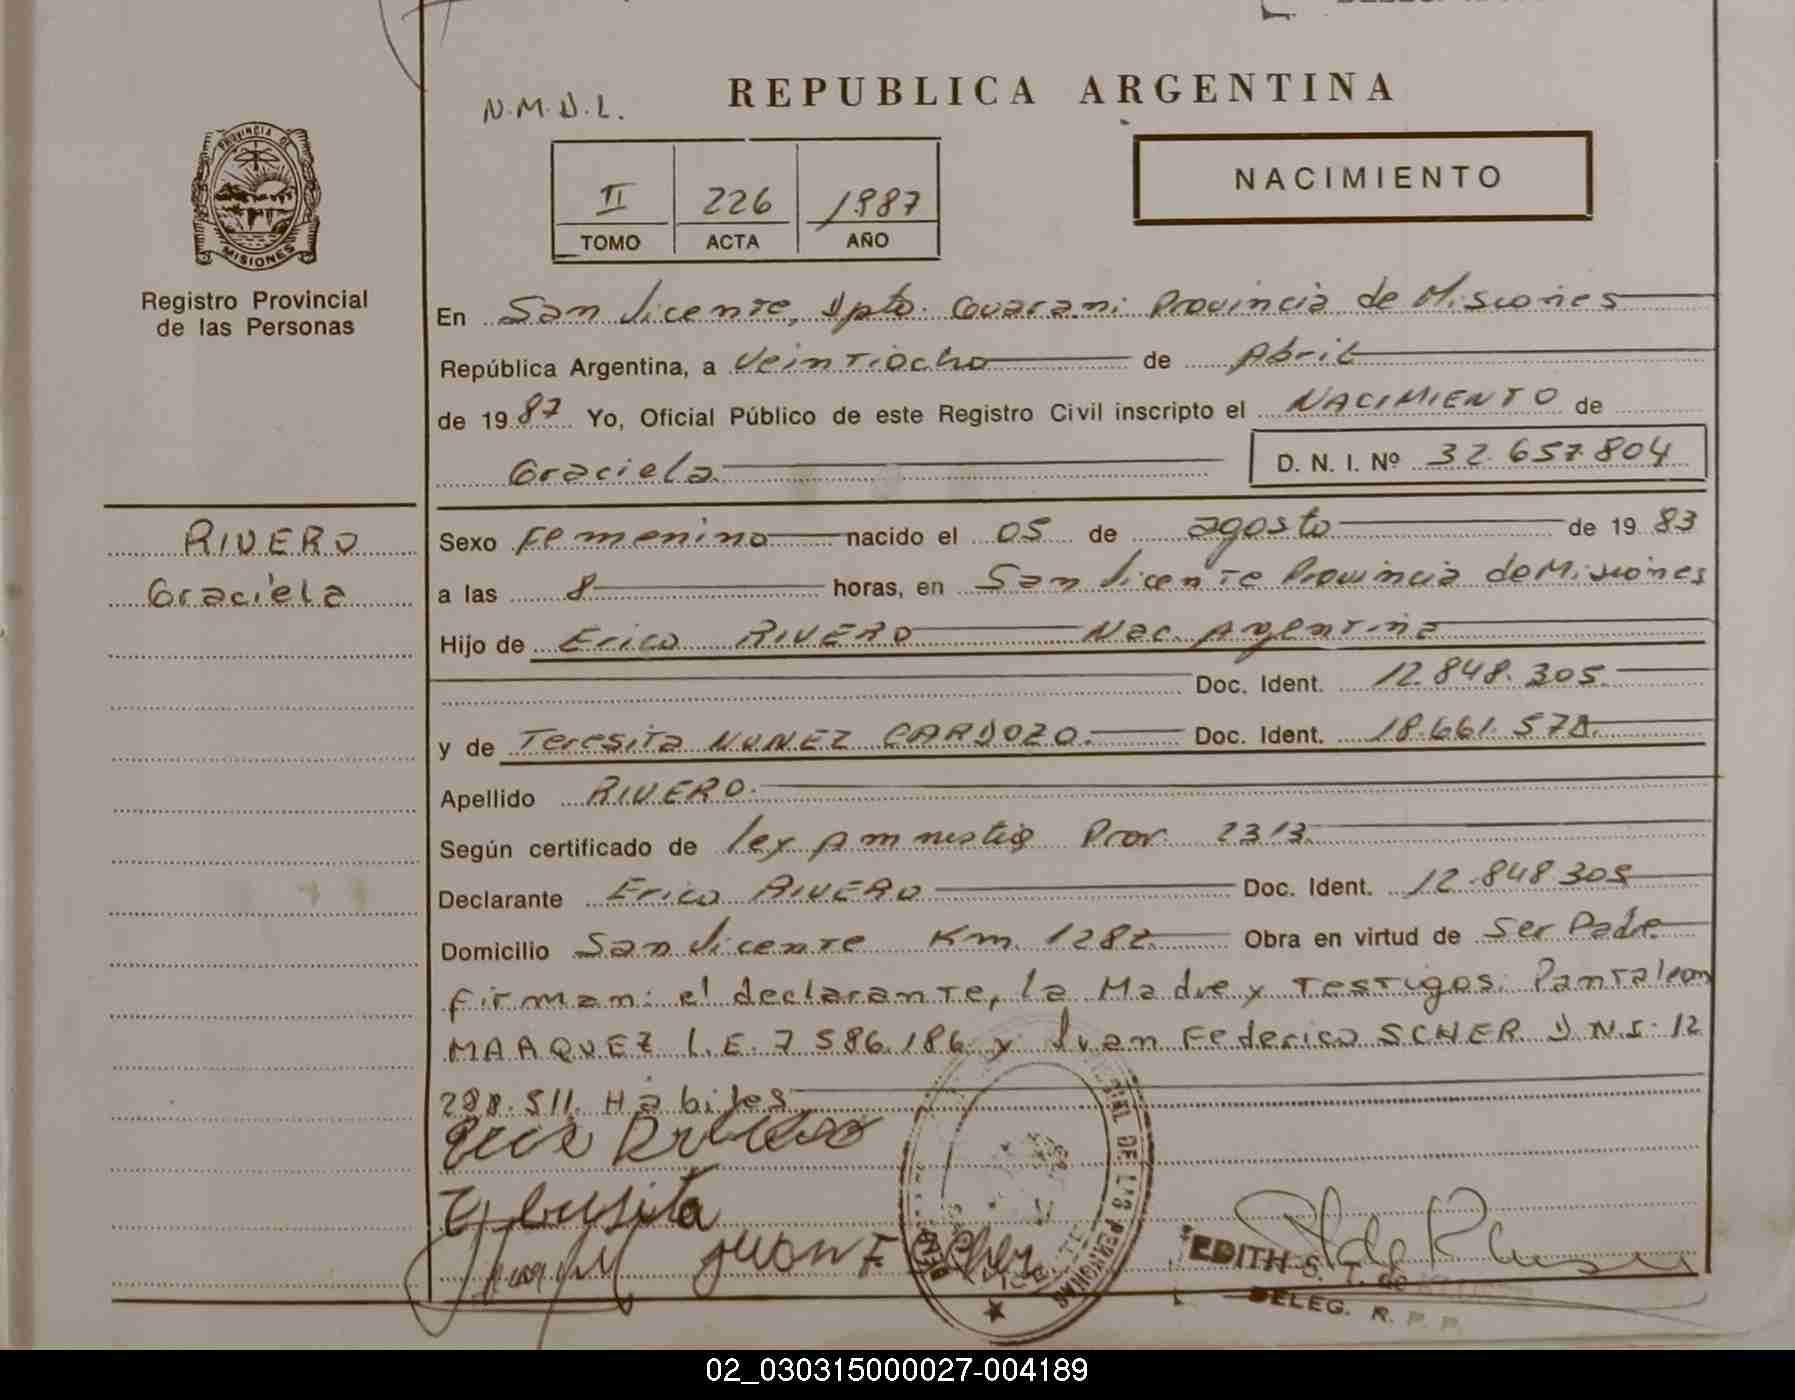 N.M.D.L.
REPUBLICA ARGENTINA
PROVINCIA DE
MISIONES
Registro Provincial
de las Personas
II 226 1987
TOMO ACTA AÑO
NACIMIENTO
En San Vicente, Dpto. Guarani Provincia de Misiones
República Argentina, a Veintiocho de Abril
de 1987 Yo, Oficial Público de este Registro Civil inscripto el NACIMIENTO de
Graciela D. N. I. Nº 32.657.804
RIVERO
Graciela
Sexo Femenino nacido el 05 de agosto de 1983
a las 8 horas, en San Vicente Provincia de Misiones
Hijo de Erico RIVERO Nac. Argentina
Doc. Ident. 12.848.305.
y de Teresita NUNEZ CARDOZO. Doc. Ident. 18.661.578.
Apellido RIVERO.
Según certificado de ley Amnistia Prov. 2313.
Declarante Erico RIVERO Doc. Ident. 12.848.305
Domicilio San Vicente Km. 1282 Obra en virtud de Ser Padre
Firman: el declarante, la Madre y Testigos: Pantaleon
MARQUEZ L.E. 7.586.186 y Juan Federico SCHER D.N.I. 12
511. Habiles
Teresita
Juan F. Scher
DE LAS PERSONAS
EDITH S. T. de
DELEG. R. P. P.
02_030315000027-004189